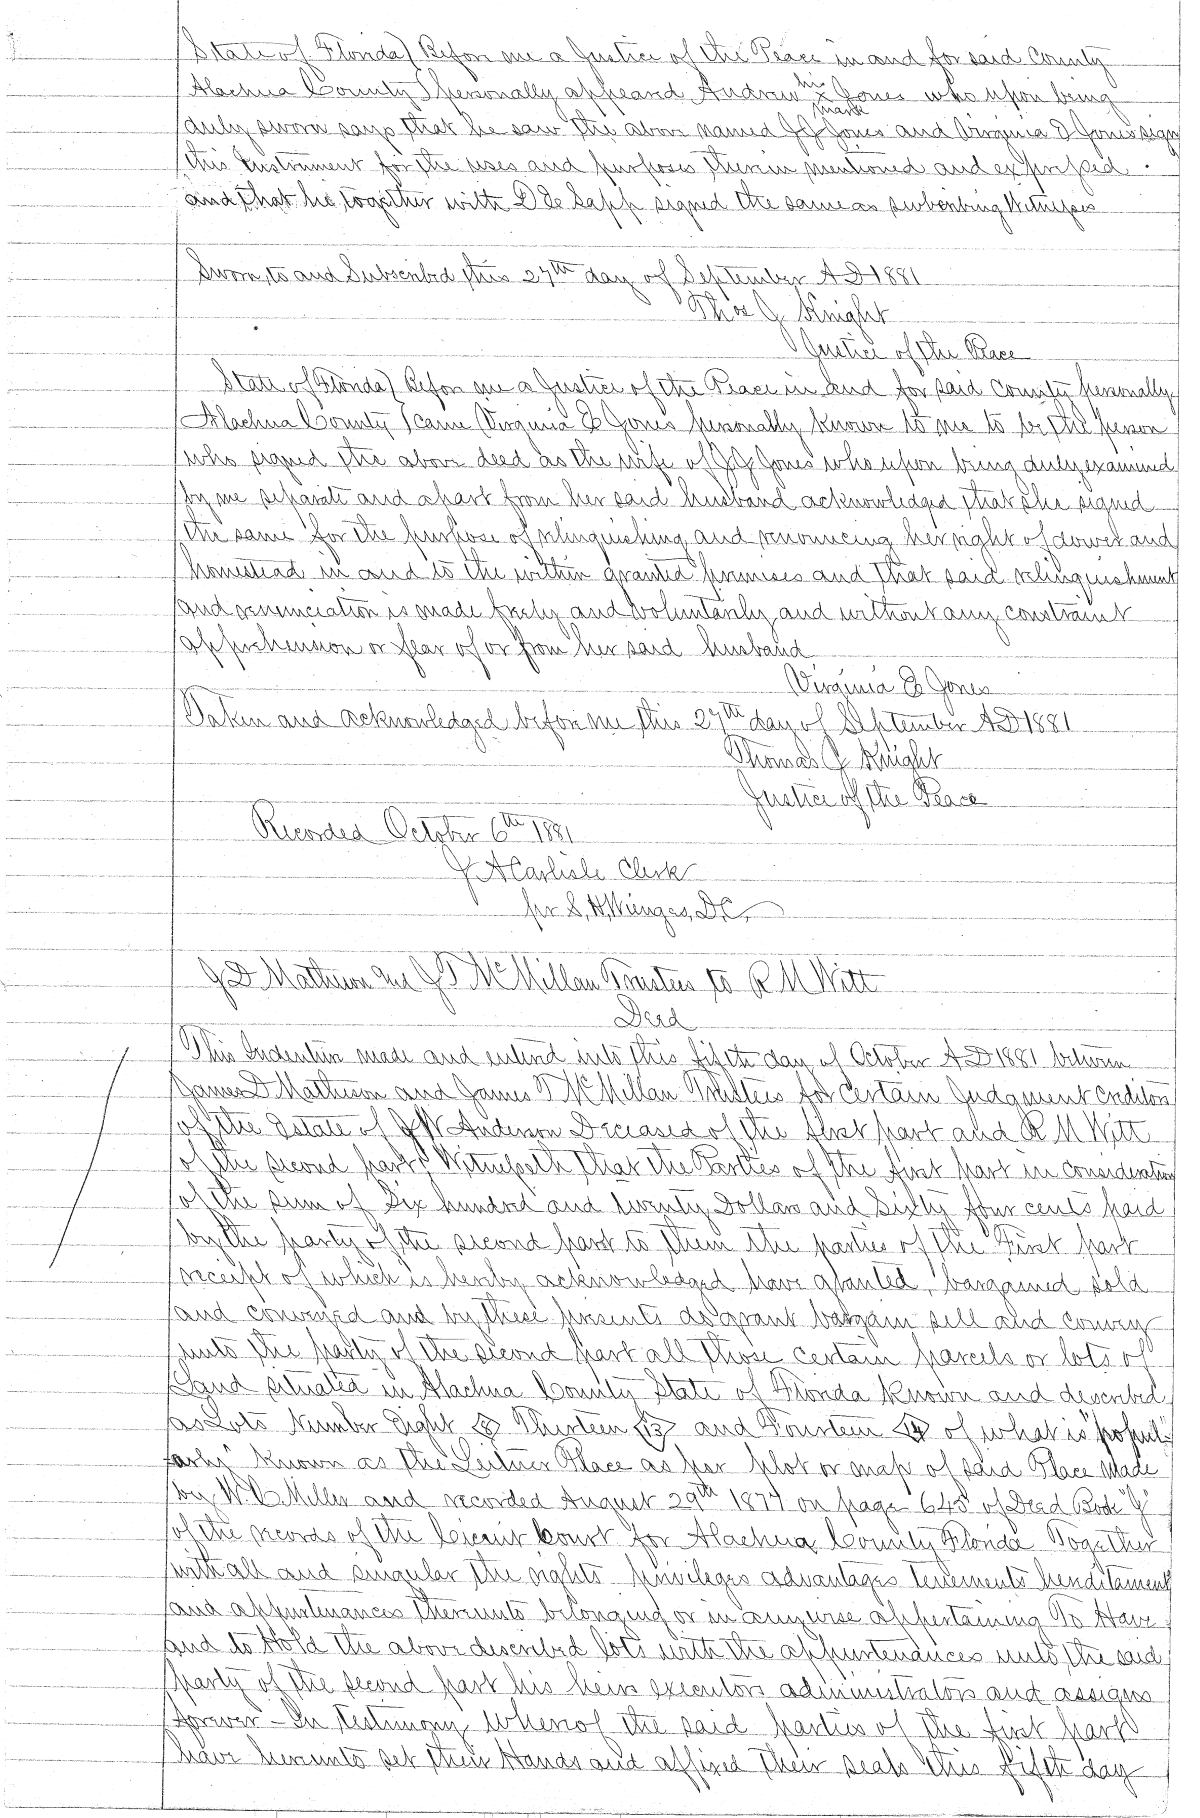 State of Florida } Before me a Justice of the Peace in and for said County
Alachua County } personally appeared Andrew his x mark Jones who upon being
duly sworn says that he saw the above named J J Jones and Virginia E Jones sign
this Instrument for the uses and purposes therein mentioned and expressed
and that he together with D E Sapp signed the same as Witnesses
Sworn to and Subscribed this 27th day of September AD 1881
Thos J Knight
Justice of the Peace
State of Florida } Before me a Justice of the Peace in and for said County personally
Alachua County } came Virginia E Jones personally known to me to be the person
who signed the above deed as the wife of J J Jones who upon being duly examined
by me separate and apart from her said husband acknowledged that she signed
the same for the purpose of relinquishing and renouncing her right of dower and
homestead in and to the within granted premises and that said relinquishment
and renunciation is made freely and voluntarily and without any constraint
apprehension or fear of or from her said husband
Virginia E Jones
Taken and acknowledged before me this 27th day of September AD 1881
Thomas J Knight
Justice of the Peace
Recorded October 6th 1881
J A Carlisle Clerk
per S. H. Wienges, D.C.
J D Matheson and J T McMillan Trustees to R M Witt
Deed
This Indenture made and entered into this fifth day of October AD 1881 between
James D Matheson and James T McMillan Trustees for certain Judgment Creditors
of the Estate of J W Anderson Deceased of the first part and R M Witt
of the second part, Witnesseth, that the Parties of the first part in consideration
of the sum of Six hundred and twenty Dollars and Sixty four cents paid
by the party of the second part to them the parties of the First part
receipt of which is hereby acknowledged have granted, bargained sold
and conveyed and by these presents do grant bargain sell and convey
unto the party of the second part all those certain parcels or lots of
Land situated in Alachua County State of Florida known and described
as Lots Number Eight <8> Thirteen <13> and Fourteen <14> of what is "popul-
arly" known as the Leitner Place as per plot or map of said Place made
by W C Miller and recorded August 29th 1877 on page 645 of Deed Book "J"
of the records of the Circuit Court for Alachua County Florida Together
with all and singular the rights privileges advantages tenements hereditament
and appurtenances thereunto belonging or in anywise appertaining To Have
and to Hold the above described lots with the appurtenances unto the said
party of the second part his heirs executors administrators and assigns
forever - In testimony Whereof the said parties of the first part
have hereunto set their Hands and affixed their seals this fifth day